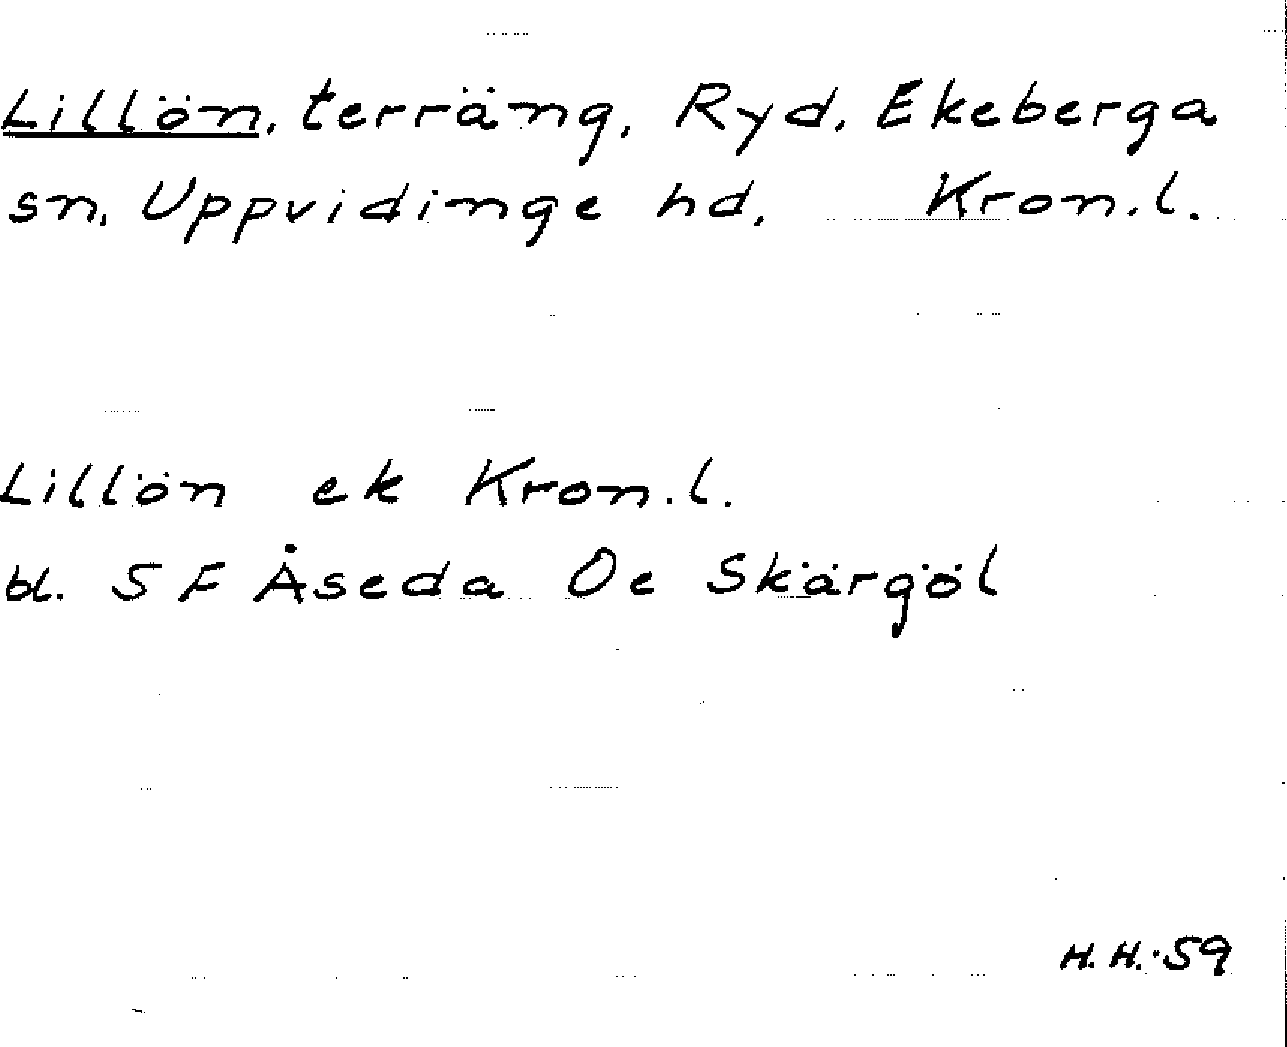 Lillön, terräng, Ryd, Ekeberga
sn, Uppvidinge hd, Kron.l.
Lillön ek Kron.l.
bl. 5 F Åseda Oe Skärgöl
H.H. 59